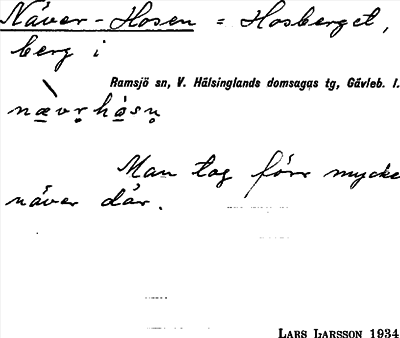 Näver-Hosen = Hosberget,
berg i
Ramsjö sn, V. Hälsinglands domsagas tg, Gävleb. l.
næ̲vr̥hås̲n̥
Man tog förr mycke
näver där.
LARS LARSSON 1934